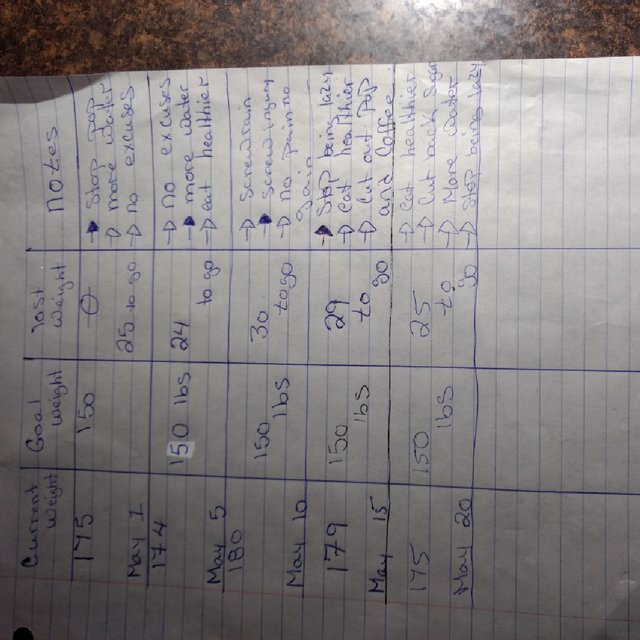 Current Weight
Goal Weight
Lost Weight
Notes
175
May 1
150
0
25 to go
→ Stop pop
→ more water
→ no excuses
174
May 5
150 lbs
24
to go
→ no excuses
→ more water
→ eat healthier
180
May 10
150
lbs
30
to go
→ no pain no
gain
179
May 15
150
lbs
29
to
go
→ Stop bein lazy
→ Eat healthier
→ Cut out pop
and coffee
175
May 20
150
lbs
25
to
go
→ Eat healthier
→ Cut back
→ More water
→ Stop being lazy